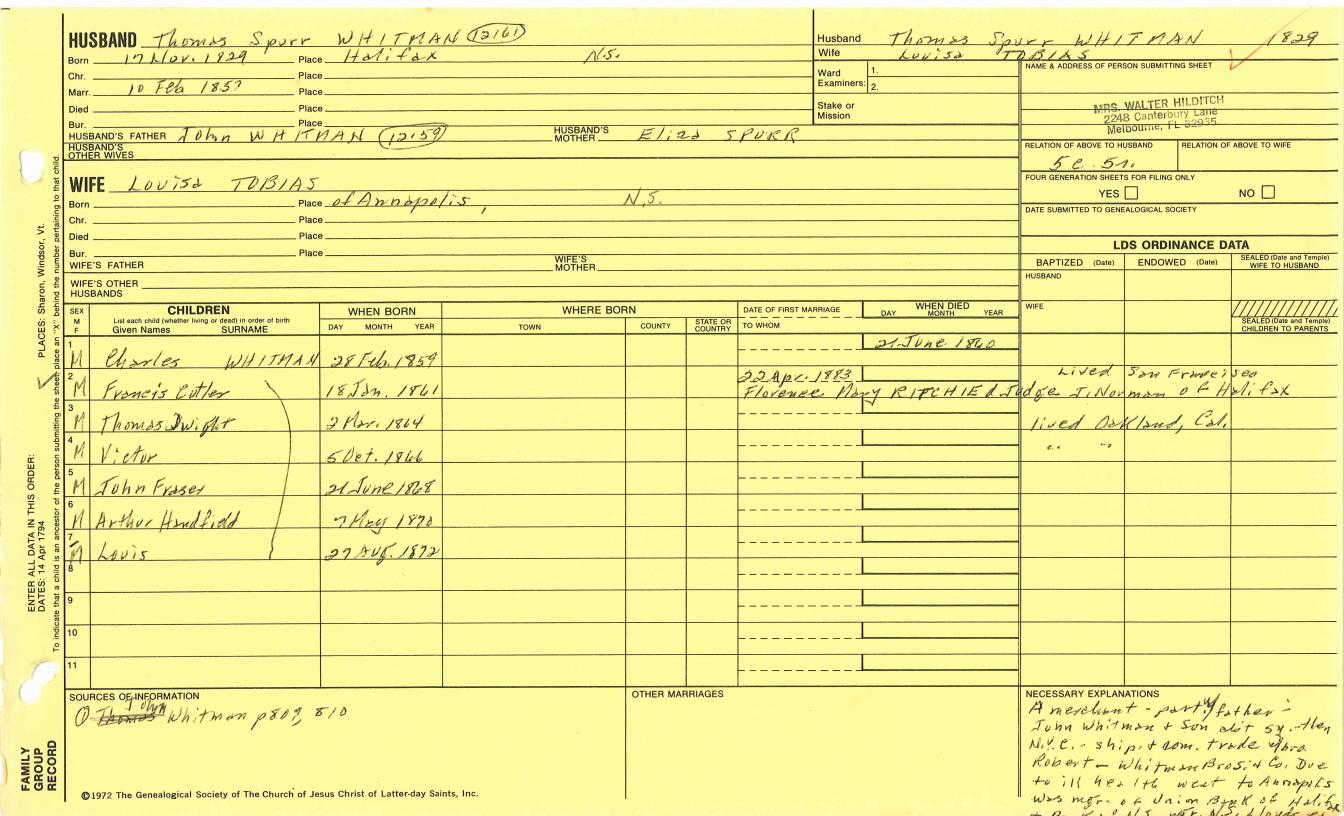 HUSBAND Thomas Spurr WHITMAN (12161)
Born 17 Nov. 1829 Place Halifax N.S.
Chr. Place
Marr. 10 Feb 1857 Place
Died Place
Bur. Place
HUSBAND'S FATHER John WHITMAN (12159) HUSBAND'S MOTHER Eliza SPURR
HUSBAND'S OTHER WIVES
Husband Thomas Spurr WHITMAN 1829
Wife Louisa TOBIAS
Ward Examiners: 1.
2.
Stake or Mission
NAME & ADDRESS OF PERSON SUBMITTING SHEET
MRS. WALTER HILDITCH
2248 Canterbury Lane
Melbourne, FL 32935
RELATION OF ABOVE TO HUSBAND RELATION OF ABOVE TO WIFE
5c. 5r.
FOUR GENERATION SHEETS FOR FILING ONLY
YES NO
DATE SUBMITTED TO GENEALOGICAL SOCIETY
WIFE Louisa TOBIAS
Born Place of Annapolis, N.S.
Chr. Place
Died Place
Bur. Place
WIFE'S FATHER WIFE'S MOTHER
WIFE'S OTHER HUSBANDS
LDS ORDINANCE DATA
BAPTIZED (Date) ENDOWED (Date) SEALED (Date and Temple) WIFE TO HUSBAND
HUSBAND
WIFE
SEALED (Date and Temple) CHILDREN TO PARENTS
SEX M F
CHILDREN
List each child (whether living or dead) in order of birth
Given Names SURNAME
WHEN BORN
DAY MONTH YEAR
WHERE BORN
TOWN COUNTY STATE OR COUNTRY
DATE OF FIRST MARRIAGE
TO WHOM
WHEN DIED
DAY MONTH YEAR
1 M Charles WHITMAN 28 Feb. 1859 21 June 1860
2 M Francis Cutler 18 Jan. 1861 22 Apr. 1883 Lived San Francisco
Florence Mary RITCHIE d Judge J. Norman of Halifax
3 M Thomas Dwight 2 Mar. 1864 lived Oakland, Cal.
4 M Victor 5 Oct. 1866 " "
5 M John Fraser 21 June 1868
6 M Arthur Handfield 7 May 1870
7 M Louis 27 Aug. 1872
8
9
10
11
SOURCES OF INFORMATION
① Thomas John Whitman p809, 810
OTHER MARRIAGES
NECESSARY EXPLANATIONS
A merchant - part w/ father -
John Whitman & Son then
N.Y.C. - ship. & com. trade w/bro
Robert - Whitman Bros. & Co. Due
to ill health went to Annapolis
was mgr. of Union Bank of Halifax
©1972 The Genealogical Society of The Church of Jesus Christ of Latter-day Saints, Inc.
FAMILY GROUP RECORD
ENTER ALL DATA IN THIS ORDER:
DATES: 14 Apr 1794 PLACES: Sharon, Windsor, Vt.
To indicate that a child is an ancestor of the person submitting the sheet, place an "X" behind the number pertaining to that child.